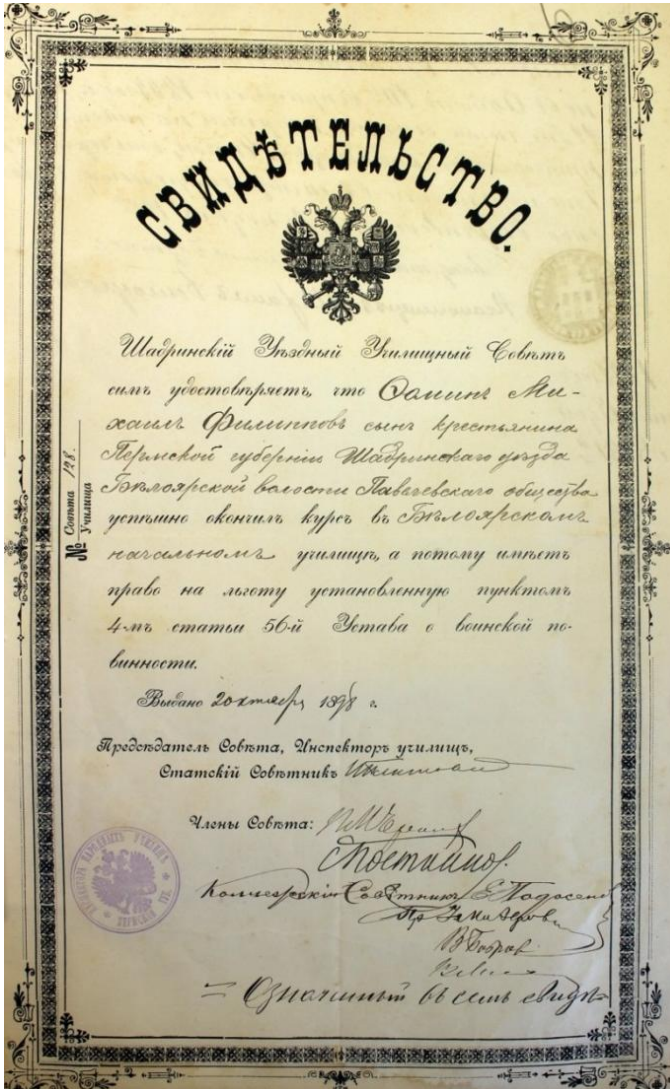 СВИДѢТЕЛЬСТВО.
Шадринскій Уѣздный Училищный Совѣтъ
симъ удостовѣряетъ, что Фоминъ Ми-
хаилъ Филипповъ сынъ крестьянина
Пермской губерніи Шадринскаго уѣзда
Бѣлоярской волости Общества
успѣшно окончилъ курсъ въ Бѣлоярскомъ
начальномъ училищѣ, а потому имѣетъ
право на льготу установленную пунктомъ
4-мъ статьи 56-й Устава о воинской по-
винности.
№ Совѣта 128.
Училища
Выдано 20 октября 1898 г.
Предсѣдатель Совѣта, Инспекторъ училищъ,
Статскій Совѣтникъ
Члены Совѣта:
Коллежскій Совѣтникъ
В Бобров
= Означенный въ семъ свидѣ-